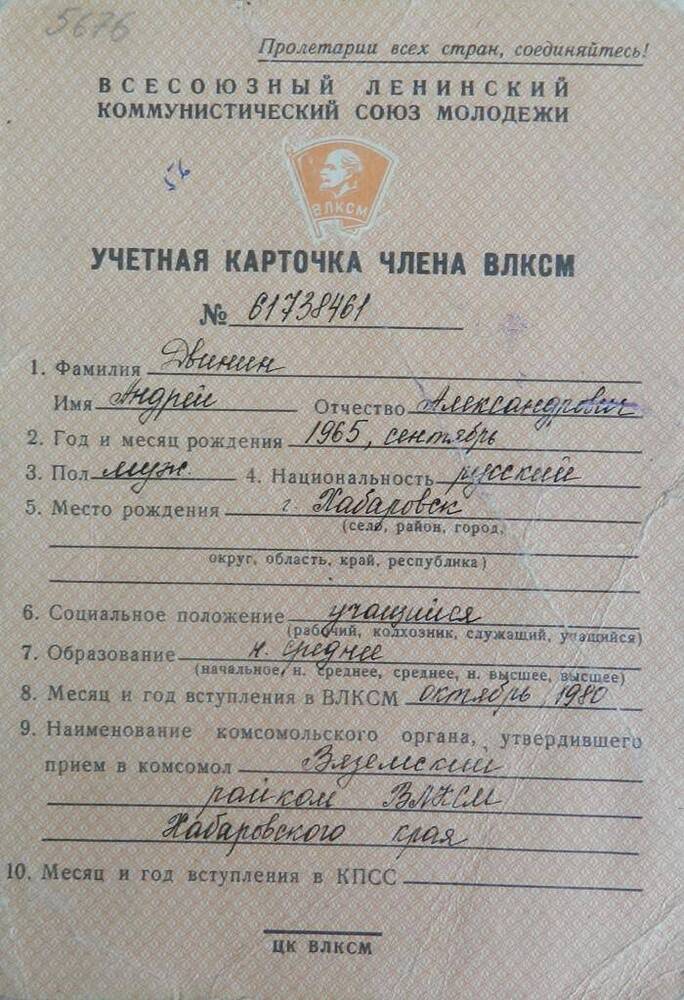 5676
Пролетарии всех стран, соединяйтесь!
ВСЕСОЮЗНЫЙ ЛЕНИНСКИЙ
КОММУНИСТИЧЕСКИЙ СОЮЗ МОЛОДЕЖИ
56
ВЛКСМ
УЧЕТНАЯ КАРТОЧКА ЧЛЕНА ВЛКСМ
№ 61738461
1. Фамилия Двинин
Имя Андрей Отчество Александрович
2. Год и месяц рождения 1965, сентябрь
3. Пол муж. 4. Национальность русский
5. Место рождения г. Хабаровск
(село, район, город,
округ, область, край, республика)
6. Социальное положение учащийся
(рабочий, колхозник, служащий, учащийся)
7. Образование н. среднее
(начальное, н. среднее, среднее, н. высшее, высшее)
8. Месяц и год вступления в ВЛКСМ октябрь, 1980
9. Наименование комсомольского органа, утвердившего
прием в комсомол Вяземский
райком ВЛКСМ
Хабаровского края
10. Месяц и год вступления в КПСС
ЦК ВЛКСМ